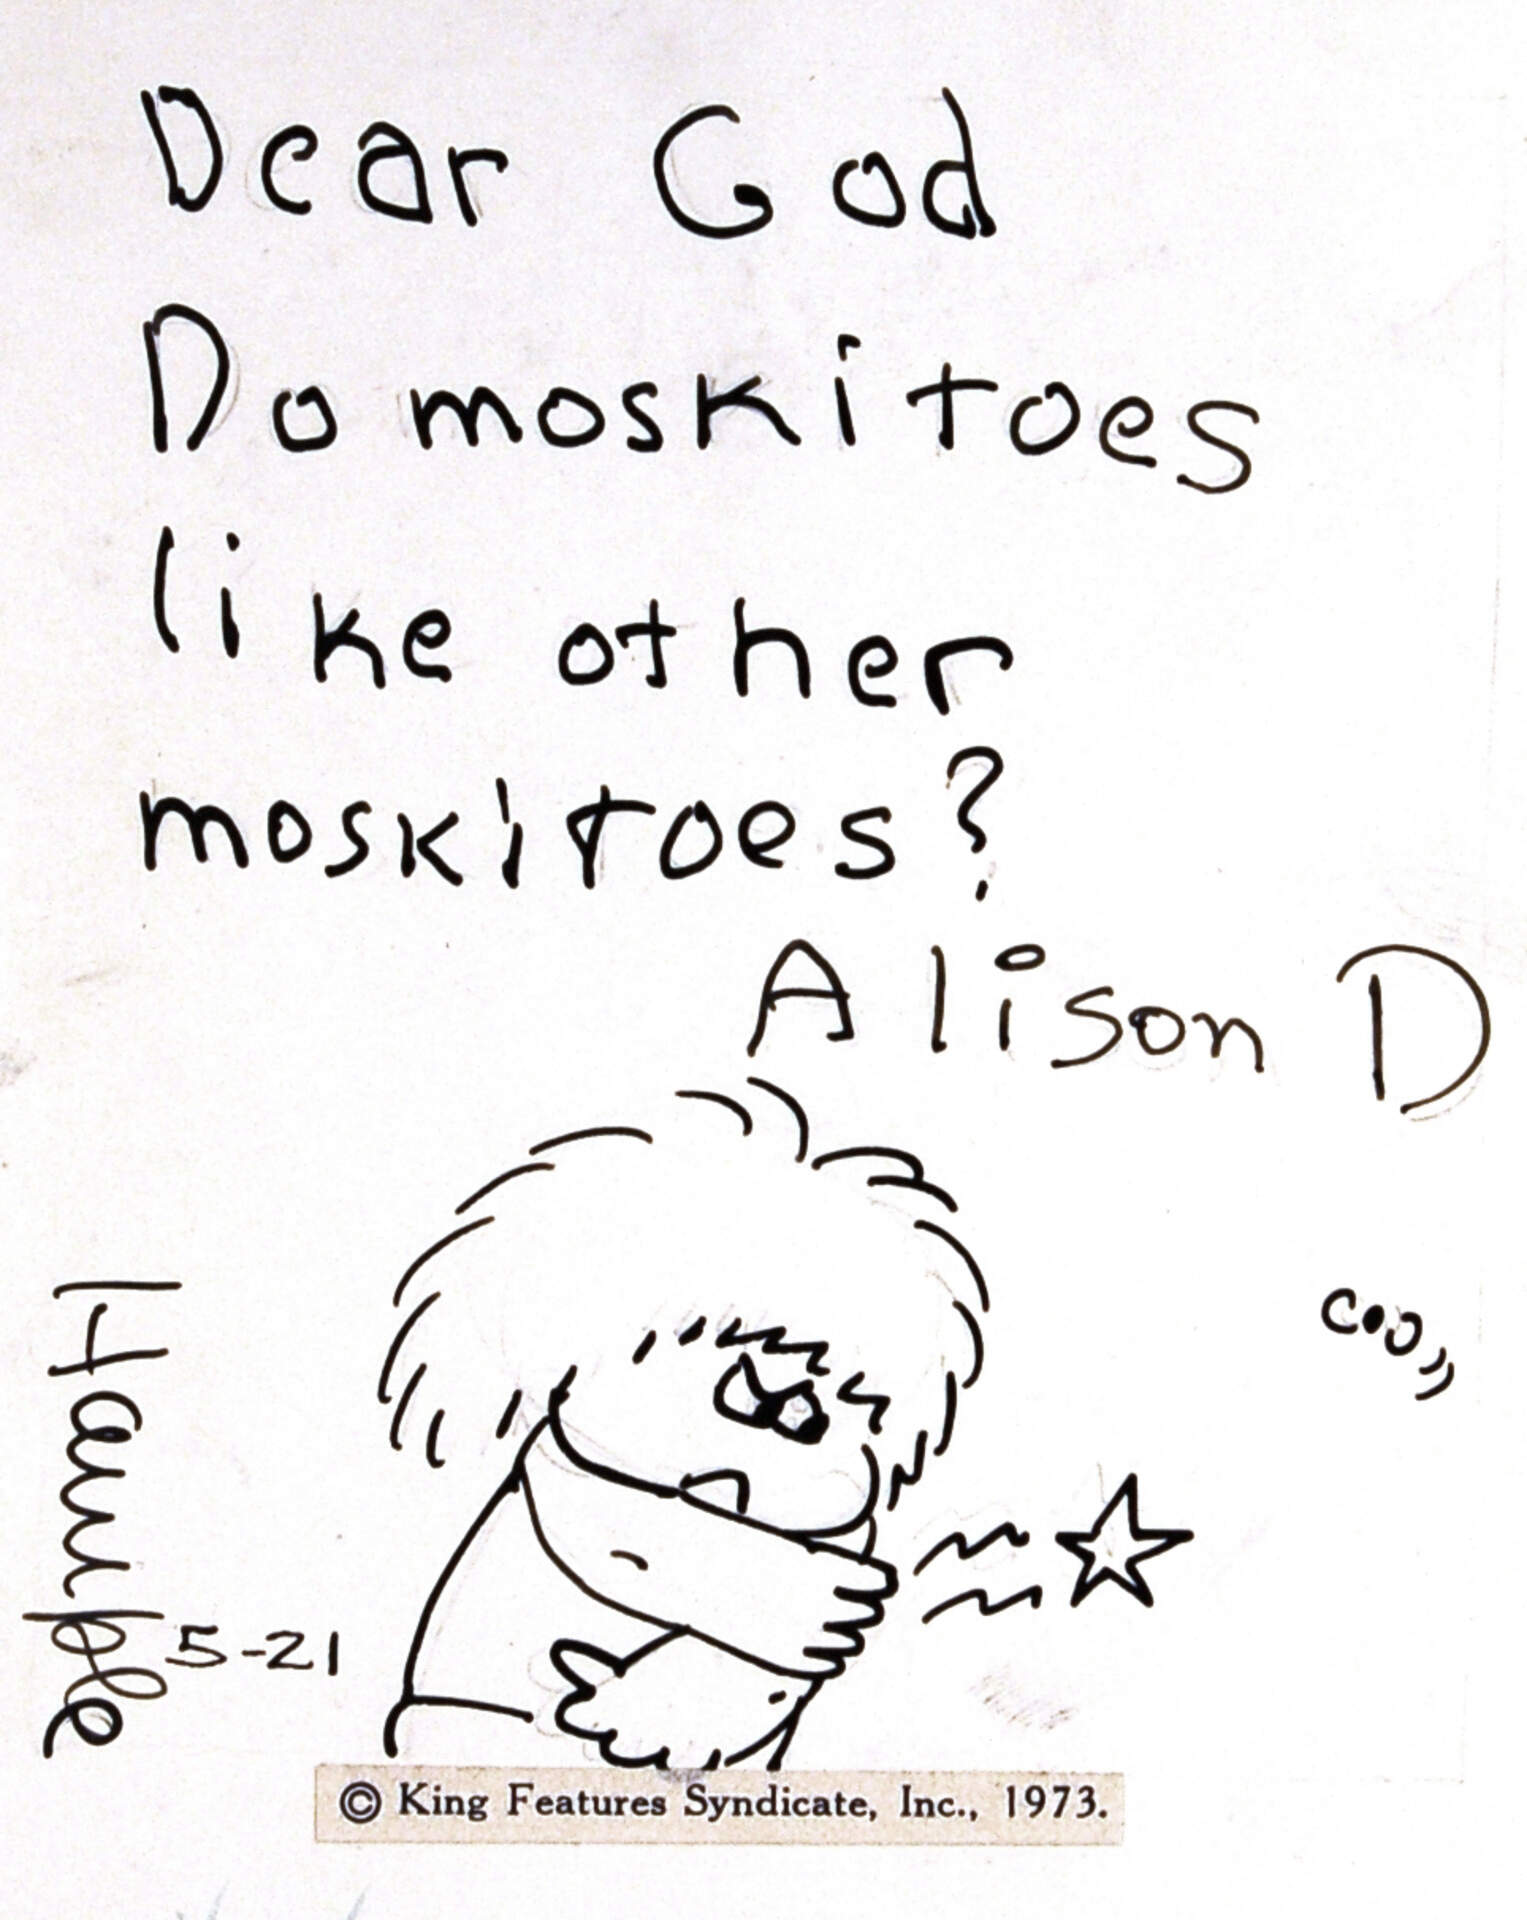 Dear God
Do moskitoes
like other
moskitoes?
Alison D
Hample
5-21
© King Features Syndicate, Inc., 1973.